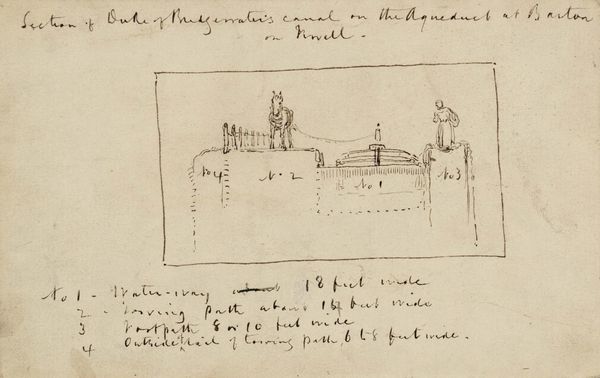 Section of Duke of Bridgewater's canal on the Aqueduct at Barton
on Irwell -
No 4
No 2
No 1
No 3
No 1 - Water-way about 18 feet wide
2 - Towing path about feet wide
3 Footpath 8 or 10 feet wide
4 Outside rail of towing path, 6 to 8 feet wide.